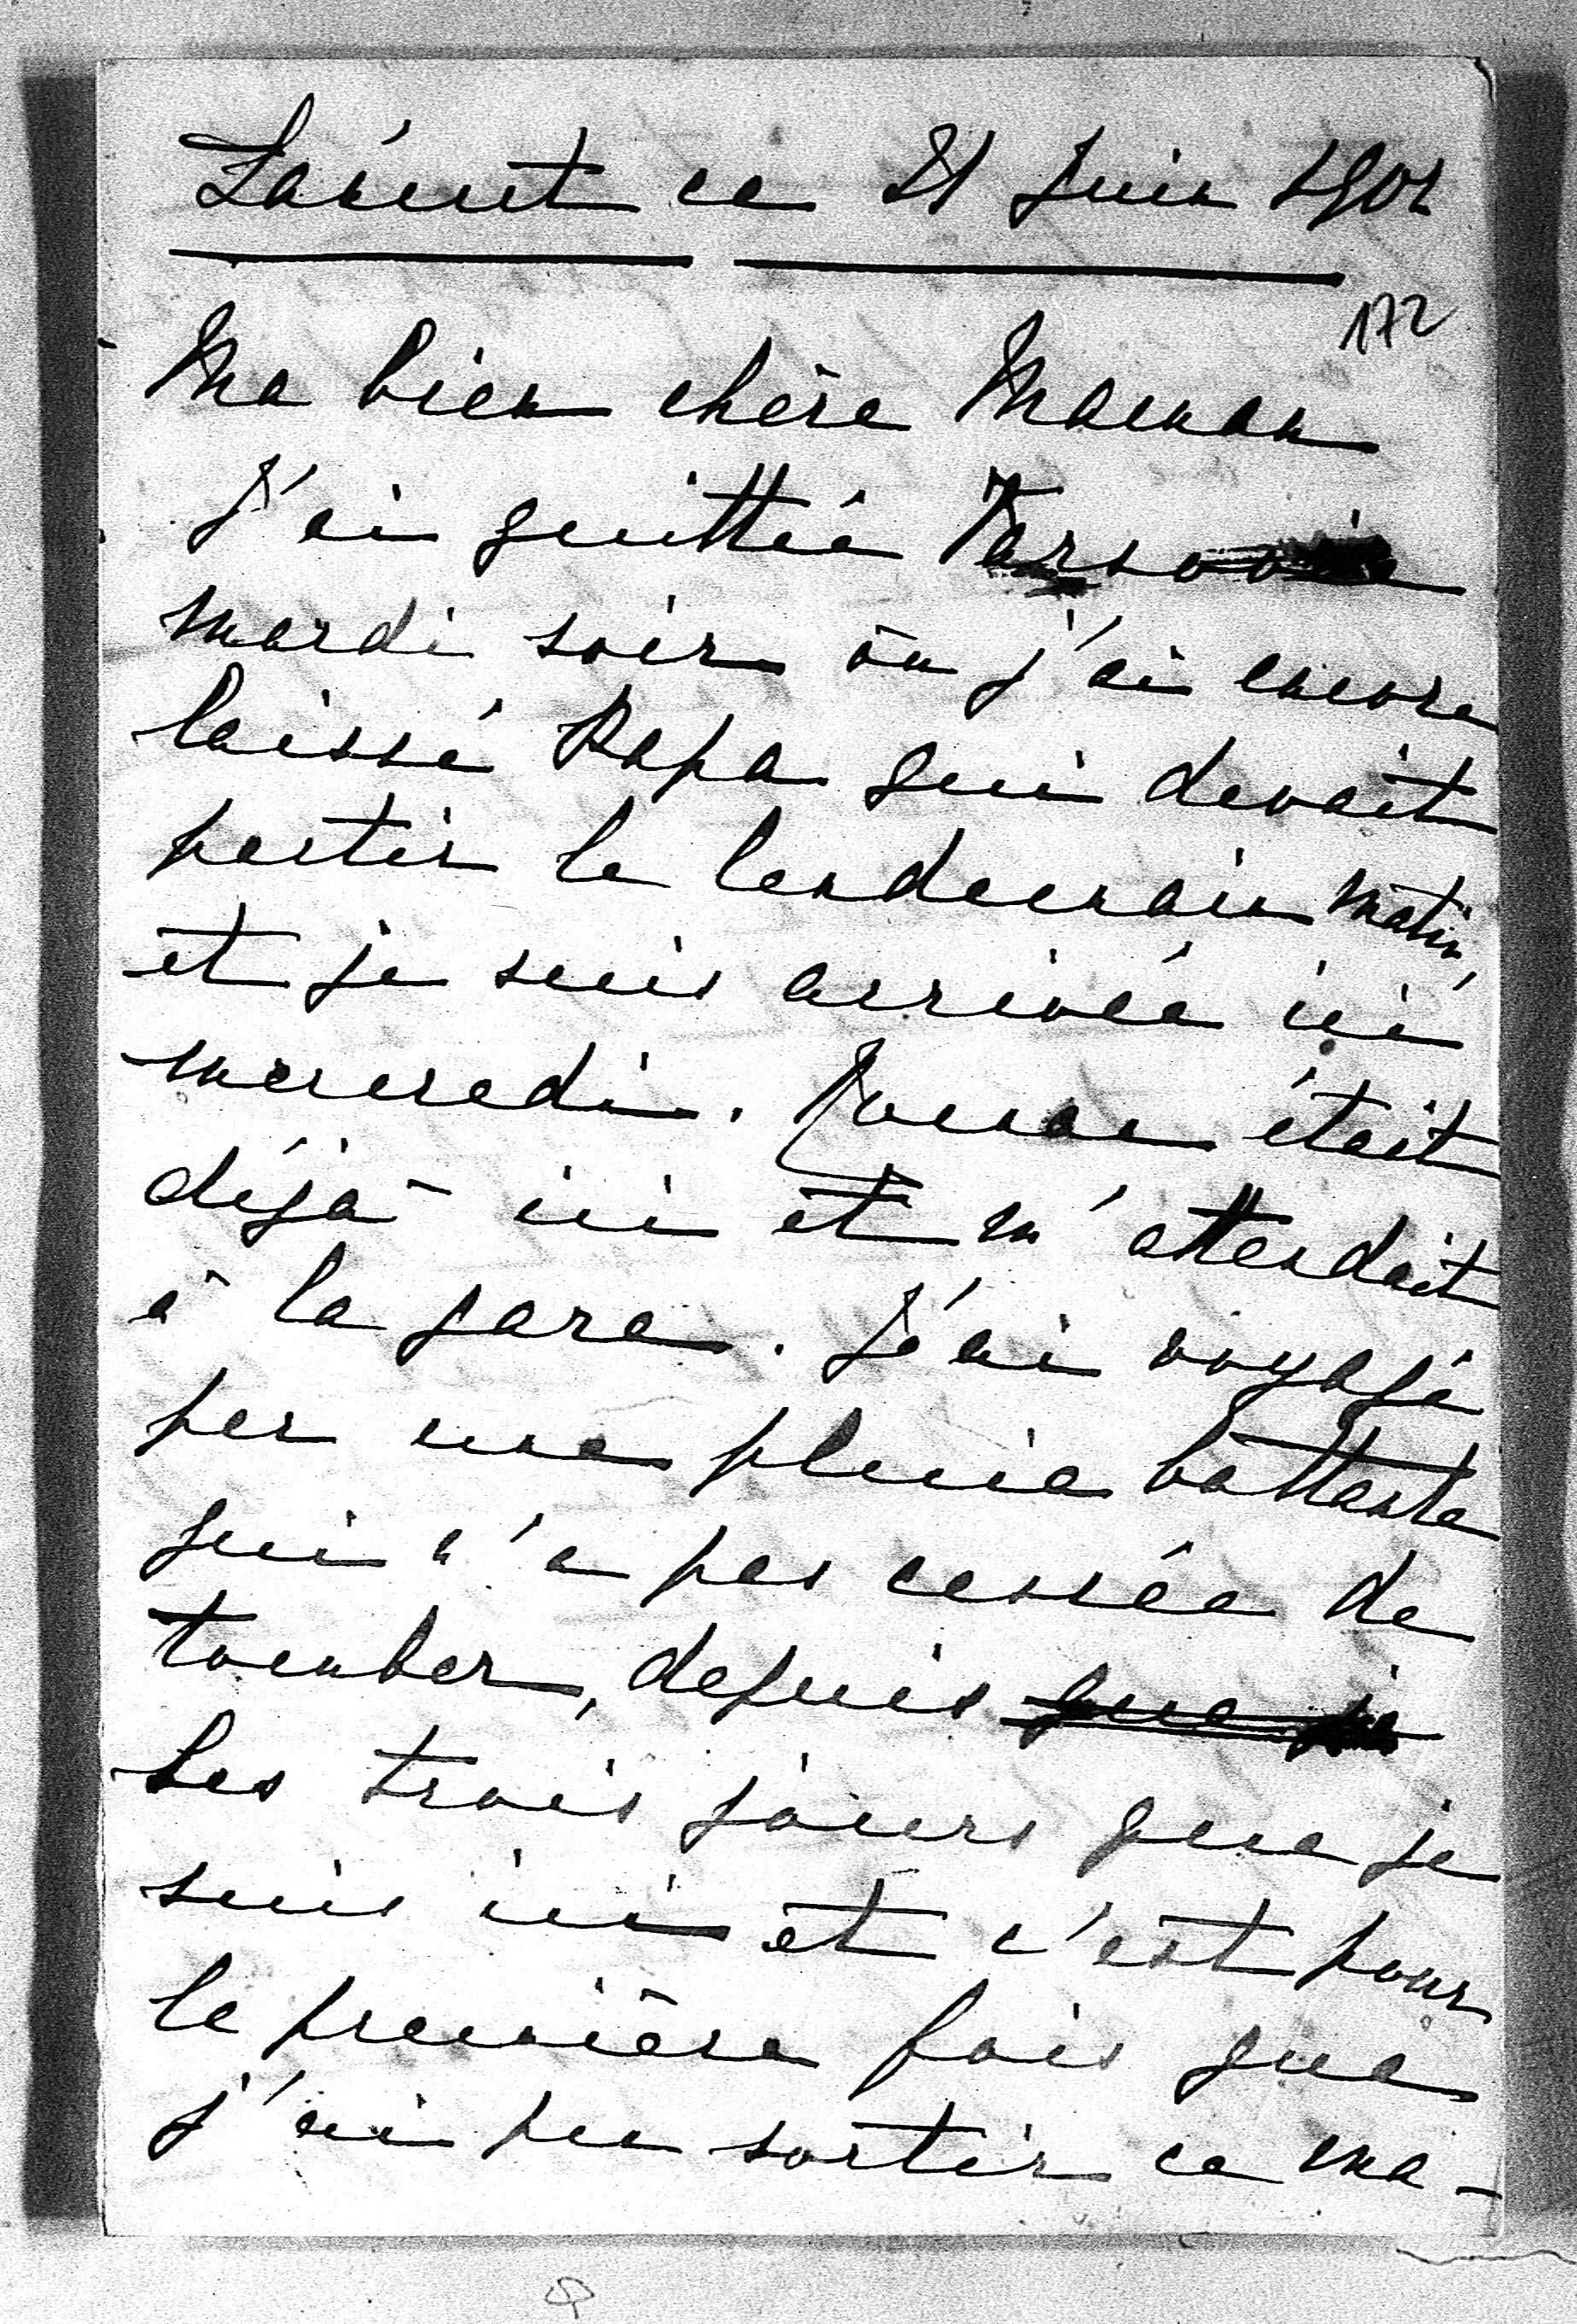 Łańcut ce 21 Juin 1902
172
Ma bien chère Maman
J'ai quittée Varsovie
mardi soir où j'ai encore
laissé Papa qui devait
partir le lendemain matin,
et je suis arrivée ici
mercredi. était
déjà ici et m'attendait
à la gare. J'ai voyagé
par une pluie battante
qui n'a pas cessée de
tomber, depuis que je
les trois jours que je
suis ici et c'est pour
la première fois que
j'ai pu sortir ce ma-